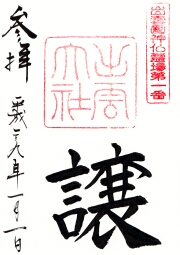 出雲國神仏霊場第一番
出雲
大社
譲
参拝
平成二九年一月一日